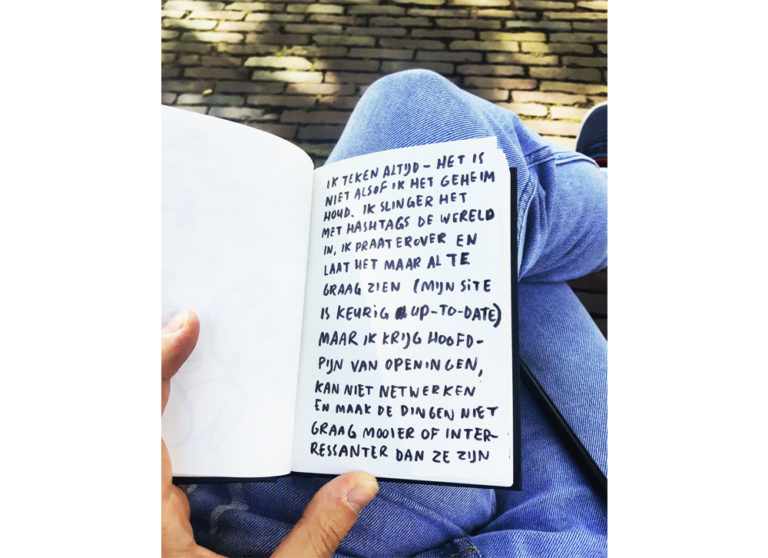 IK TEKEN ALTIJD - HET IS
NIET ALSOF IK HET GEHEIM
HOUD. IK SLINGER HET
MET HASHTAGS DE WERELD
IN, IK PRAAT EROVER EN
LAAT HET MAAR AL TE
GRAAG ZIEN (MIJN SITE
IS KEURIG UP-TO-DATE)
MAAR IK KRIJG HOOFD-
PIJN VAN OPENINGEN,
KAN NIET NETWERKEN
EN MAAK DE DINGEN NIET
GRAAG MOOIER OF INTER-
RESSANTER DAN ZE ZIJN